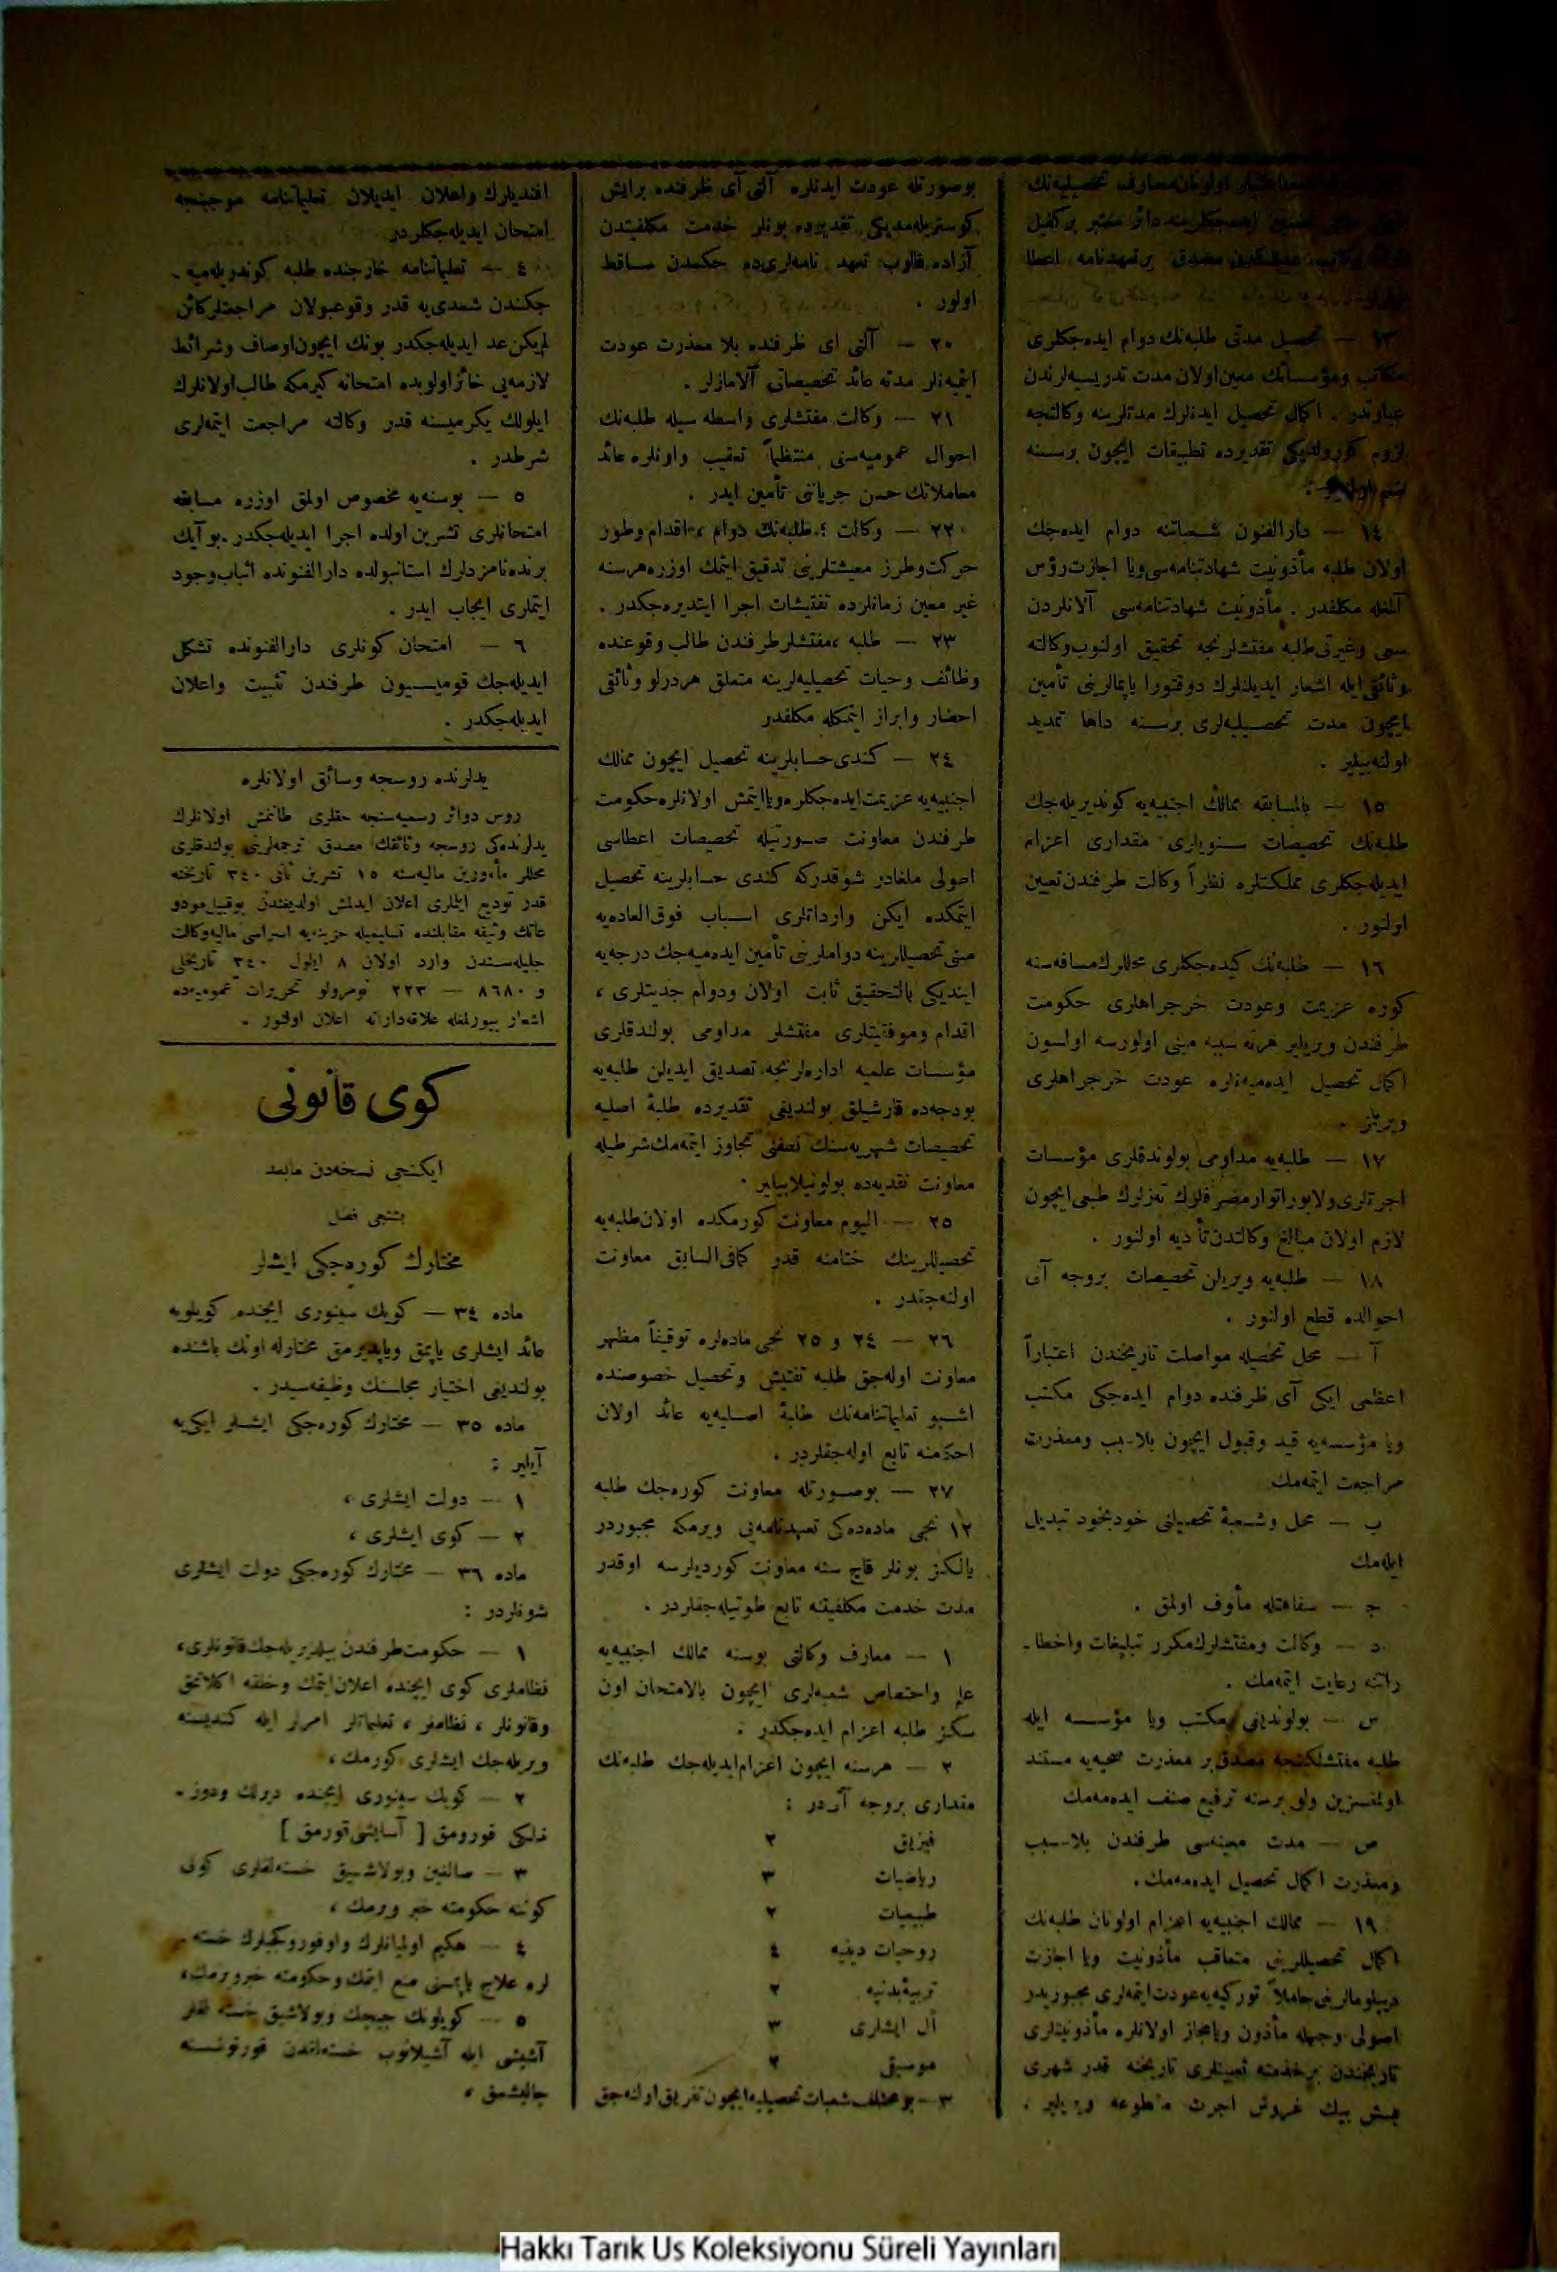 ١٣ — تحصیل مدتی طلبه‌نك دوام ایده‌جكلری
مكاتب ومؤسساتك معین اولان مدت تدریسیه‌لرندن
عبارتدر . اكمال تحصیل ایدنلرك مدتلرینه وكالتجه
لزوم كورولدیكی تقدیرده تطبیقات ایچون برسنه
١٤ — دارالفنون شعباتنه دوام ایده‌جك
اولان طلبه مأذونیت شهادتنامه‌سی ویا اجازت رؤس
آلمغله مكلفدر . مأذونیت شهادتنامه‌سی آلانلردن
سعی وغیرتی طلبه مفتشلرنجه تحقیق اولنوب وكالته
وثائقی ایله اشعار ایدیلنلرك دوقتورا یاپمالرینی تأمین
ایچون مدت تحصیلیه‌لری برسنه داها تمدید
اولنه‌بیلیر .
١٥ — بالمسابقه ممالك اجنبیه‌یه كوندیریله‌جك
طلبه‌نك تحصیصات سنویلری مقداری اعزام
ایدیله‌جكلری مملكتلره نظراً وكالت طرفندن تعیین
اولنور .
١٦ — طلبه‌نك كیده‌جكلری محللرك مسافه‌سنه
كوره عزیمت وعودت خرجراهلری حكومت
طرفندن ویریلیر هرنه سببه مبنی اولورسه اولسون
اكمال تحصیل ایده‌میه‌نلره عودت خرجراهلری
ویریلمز .
١٧ — طلبه‌یه مداومی بولوندقلری مؤسسات
اجرتلری ولابوراتوار مصرفلرك تزلرك طبعی ایچون
لازم اولان مبالغ وكالتدن تأدیه اولنور .
١٨ — طلبه‌یه ویریلن تحصیصات بروجه آتی
احوالده قطع اولنور .
آ — محل تحصیله مواصلت تاریخندن اعتباراً
اعظمی ایكی آی ظرفنده دوام ایده‌جكی مكتب
ویا مؤسسه‌یه قید وقبول ایچون بلاسبب ومعذرت
مراجعت ایتمه‌مك
ب — محل وشعبهٔ تحصیلنی خودبخود تبدیل
ایله‌مك
ج — سفاهتله مأوف اولمق .
د — وكالت ومفتشلرك مكرر تبلیغات واخطا-
راتنه رعایت ایتمه‌مك .
س — بولوندیغی مكتب ویا مؤسسه ایله
طلبه مفتشلكنجه مصدق بر معذرت صحیه‌یه مستند
اولمقسزین ولو برسنه ترفیع صنف ایده‌مه‌مك
ص — مدت معینه‌سی ظرفندن بلاسبب
ومعذرت اكمال تحصیل ایده‌مه‌مك .
١٩ — ممالك اجنبیه‌یه اعزام اولونان طلبه‌نك
اكمال تحصیللرینی متعاقب مأذونیت ویا اجازت
دیپلومالرینی حاملاً توركیه‌یه عودت ایتمه‌لری مجبوریدر
اصولی وجهله مأذون ویا مجاز اولانلره مأذونیتلری
تاریخندن برخدمته تعیینلری تاریخنه قدر شهری
بیك غروش اجرت مقطوعه ویریلیر .
بوصورتله عودت ایدنلره آلتی آی ظرفنده برایش
كوستریله‌مدیكی تقدیرده بونلر خدمت مكلفیتندن
آزاده قالوب تعهد نامه‌لری‌ده حكمدن ساقط
اولور .
٢٠ — آلتی ای ظرفنده بلا معذرت عودت
ایتمیه‌نلر مدته عائد تخصیصاتی آلامازلر .
٢١ — وكالت مفتشلری واسطه سیله طلبه‌نك
احوال عمومیه‌سنی منتظماً تعقیب واونلره عائد
معاملاتك حسن جریاننی تأمین ایدر .
٢٢ — وكالت ؛ طلبه‌نك دوام ، اقدام وطور
حركت وطرز معیشتلرینی تدقیق ایتمك اوزره هرسنه
غیر معین زمانلرده تفتیشات اجرا ایتدیره‌جكدر .
٢٣ — طلبه ، مفتشلر طرفندن طالب وقوعنده
وظائف وحیات تحصیلیه‌لرینه متعلق هردرلو وثائقی
احضار وابراز ایتمكله مكلفدر
٢٤ — كندی حسابلرینه تحصیل ایچون ممالك
اجنبیه‌یه عزیمت ایده‌جكلره ویا ایتمش اولانلره حكومت
طرفندن معاونت صورتیله تخصیصات اعطاسی
اصولی ملغادر شوقدركه كندی حسابلرینه تحصیل
ایتمكده ایكن وارداتلری اسباب فوق‌العاده‌یه
مبنی تحصیللرینه دواملرینی تأمین ایده‌میه‌جك درجه‌یه
ایندیكی بالتحقیق ثابت اولان ودوام جدیتلری ،
اقدام وموفقیتلری مفتشلر مداومی بولندقلری
مؤسسات علمیه اداره‌لرنجه تصدیق ایدیلن طلبه‌یه
بودجه‌ده قارشیلق بولندیغی تقدیرده طلبهٔ اصلیه
تخصیصات شهریه‌سنك نصفنی تجاوز ایتمه‌مك شرطیله
معاونت نقدیه‌ده بولونیلابیلیر .
٢٥ — الیوم معاونت كورمكده اولان طلبه‌یه
تحصیللرینك ختامنه قدر كمافی‌السابق معاونت
اولنه‌جقدر .
٢٦ — ٢٤ و ٢٥ نجی ماده‌لره توفیقاً مظهر
معاونت اوله‌جق طلبه تفتیش وتحصیل خصوصنده
اشبو تعلیماتنامه‌نك طلبهٔ اصلیه‌یه عائد اولان
احكامنه تابع اوله‌جقلردر .
٢٧ — بوصورتله معاونت كوره‌جك طلبه
١٢ نجی ماده‌ده‌كی تعهدنامه‌یی ویرمكه مجبوردر
یالكز بونلر قاچ سنه معاونت كوردیلرسه اوقدر
مدت خدمت مكلفیتنه تابع طوتیله‌جقلردر .
١ — معارف وكالتی بوسنه ممالك اجنبیه‌یه
علم واختصاص شعبه‌لری ایچون بالامتحان اون
سكز طلبه اعزام ایده‌جكدر .
٢ — هرسنه ایچون اعزام ایدیله‌جك طلبه‌نك
مقداری بروجه آتیدر :
فیزیق ٢
ریاضیات ٣
طبیعیات ٢
روحیات دینیه ٤
تربیهٔ بدنیه ٢
أل ایشلری ٣
موسیقی ٢
٣ — بو مختلف شعبات تحصیلیه ایچون تفریق اولنه‌جق
افندیلرك واعلان ایدیلان تعلیماتنامه موجبنجه
امتحان ایدیله‌جكلردر
٤ — تعلیماتنامه خارجنده طلبه كوندریله‌میه-
جكندن شمدی‌یه قدر وقوعبولان مراجعتلر كأن
لم‌یكن عد ایدیله‌جكدر بونك ایچون اوصاف وشرائط
لازمه‌یی حائز اولوبده امتحانه كیرمكه طالب اولانلرك
ایلولك یكرمیسنه قدر وكالته مراجعت ایتمه‌لری
شرطدر .
٥ — بوسنه‌یه مخصوص اولمق اوزره مسابقه
امتحانلری تشرین اولده اجرا ایدیله‌جكدر . بوآیك
برنده نامزدلرك استانبولده دارالفنونده اثبات وجود
ایتملری ایجاب ایدر .
٦ — امتحان كونلری دارالفنونده تشكل
ایدیله‌جك قومیسیون طرفندن تثبیت واعلان
ایدیله‌جكدر .
یدلرنده روسجه وسائق اولانلره
روس دوائر رسمیه‌سنجه حقلری طانمش اولانلرك
یدلرنده‌كی روسجه وثائقك مصدق ترجمه‌لرینی بولندقلری
محللر مأمورین مالیه‌سنه ١٥ تشرین ثانی ٣٤٠ تاریخنه
قدر تودیع ایتلری اعلان ایدلمش اولدیغندن بوقبیل مودو
عاتك وثیقه مقابلنده تسلیمیله خزینه‌یه اسراسی مالیه وكالت
جلیله‌سندن وارد اولان ٨ ایلول ٣٤٠ تاریخلی
و ٨٦٨٠ — ٢٢٣ نومرولو تحریرات عمومیه‌ده
اشعار بیورلمغله علاقه‌دارانه اعلان اولنور .
كوی قانونی
ایكنجی نسخه‌دن مابعد
بشنجی فصل
مختارك كوره‌جكی ایشلر
ماده ٣٤ — كویك سینوری ایچنده كویلویه
عائد ایشلری یاپمق ویاپدیرمق مختارله اونك باشنده
بولندیغی اختیار مجلسنك وظیفه‌سیدر .
ماده ٣٥ — مختارك كوره‌جكی ایشلر ایكی‌یه
آیلیر :
١ — دولت ایشلری ،
٢ — كوی ایشلری ،
ماده ٣٦ — مختارك كوره‌جكی دولت ایشلری
شونلردر :
١ — حكومت طرفندن بیلدیریله‌جك قانونلری ،
نظاملری كوی ایچنده اعلان ایتمك وخلقه اكلاتمق
وقانونلر ، نظاملر ، تعلیماتلر امرلر ایله كندیسنه
ویریله‌جك ایشلری كورمك ،
٢ — كویك سینوری ایچنده دیرلك ودوز-
نلكی قورومق [ آسایشی قورمق ]
٣ — صالغین وبولاشیق خسته‌لقلری كونی
كوننه حكومته خبر ویرمك ،
٤ — حكیم اولمیانلرك واوفوروكجیلرك خسته-
لره علاج یاپمسنی منع ایتمك وحكومته خبر ویرمك ،
٥ — كویلونك چیچك وبولاشیق خسته لقلر
آشیسی ایله آشیلانوب خسته‌لقدن قورتولمسنه
چالیشمق ،
Hakkı Tarık Us Koleksiyonu Süreli Yayınları